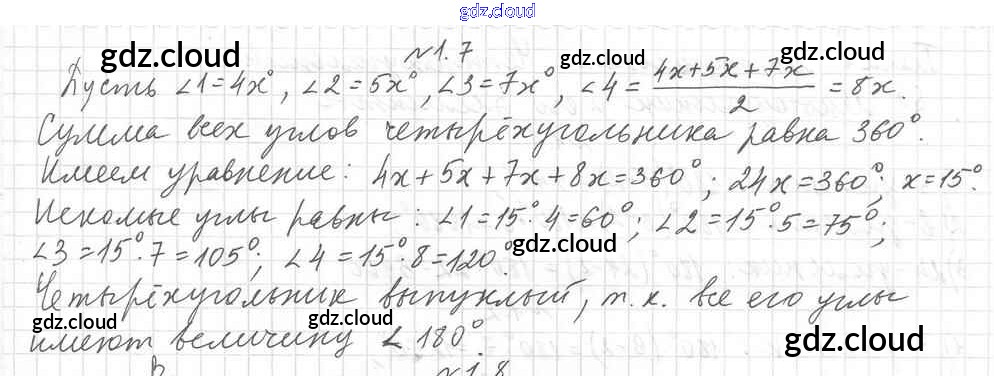 gdz.cloud
№1.7
gdz.cloud gdz.cloud gdz.cloud
Пусть ∠1=4x°, ∠2=5x°, ∠3=7x°, ∠4= (4x+5x+7x)/2 = 8x.
Сумма всех углов четырёхугольника равна 360°.
Имеем уравнение: 4x+5x+7x+8x=360°; 24x=360°; x=15°.
Искомые углы равны: ∠1=15°·4=60°; ∠2=15°·5=75°;
∠3=15°·7=105°; ∠4=15°·8=120°.
gdz.cloud gdz.cloud
Четырёхугольник выпуклый, т.к. все его углы
gdz.cloud gdz.cloud
имеют величину < 180°.
gdz.cloud
№1.8